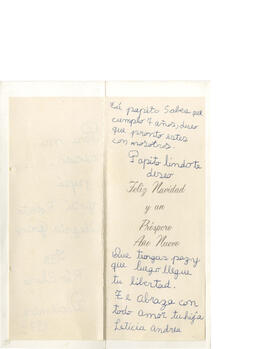 papito Sabes que
cumplo 7 años, deseo
que pronto estes
con nosotros.
Papito lindo te
deseo
Feliz Navidad
y un
Próspero
Año Nuevo
Que tengas paz y
que luego llegue
tu libertad.
Te Abraza con
todo amor tu hija
Leticia Andrea